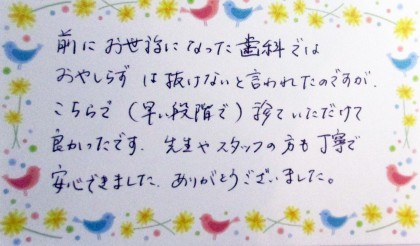 前にお世話になった歯科では
おやしらずは抜けないと言われたのですが、
こちらで(早い段階で)診ていただけて
良かったです。先生やスタッフの方も丁寧で
安心できました。ありがとうございました。